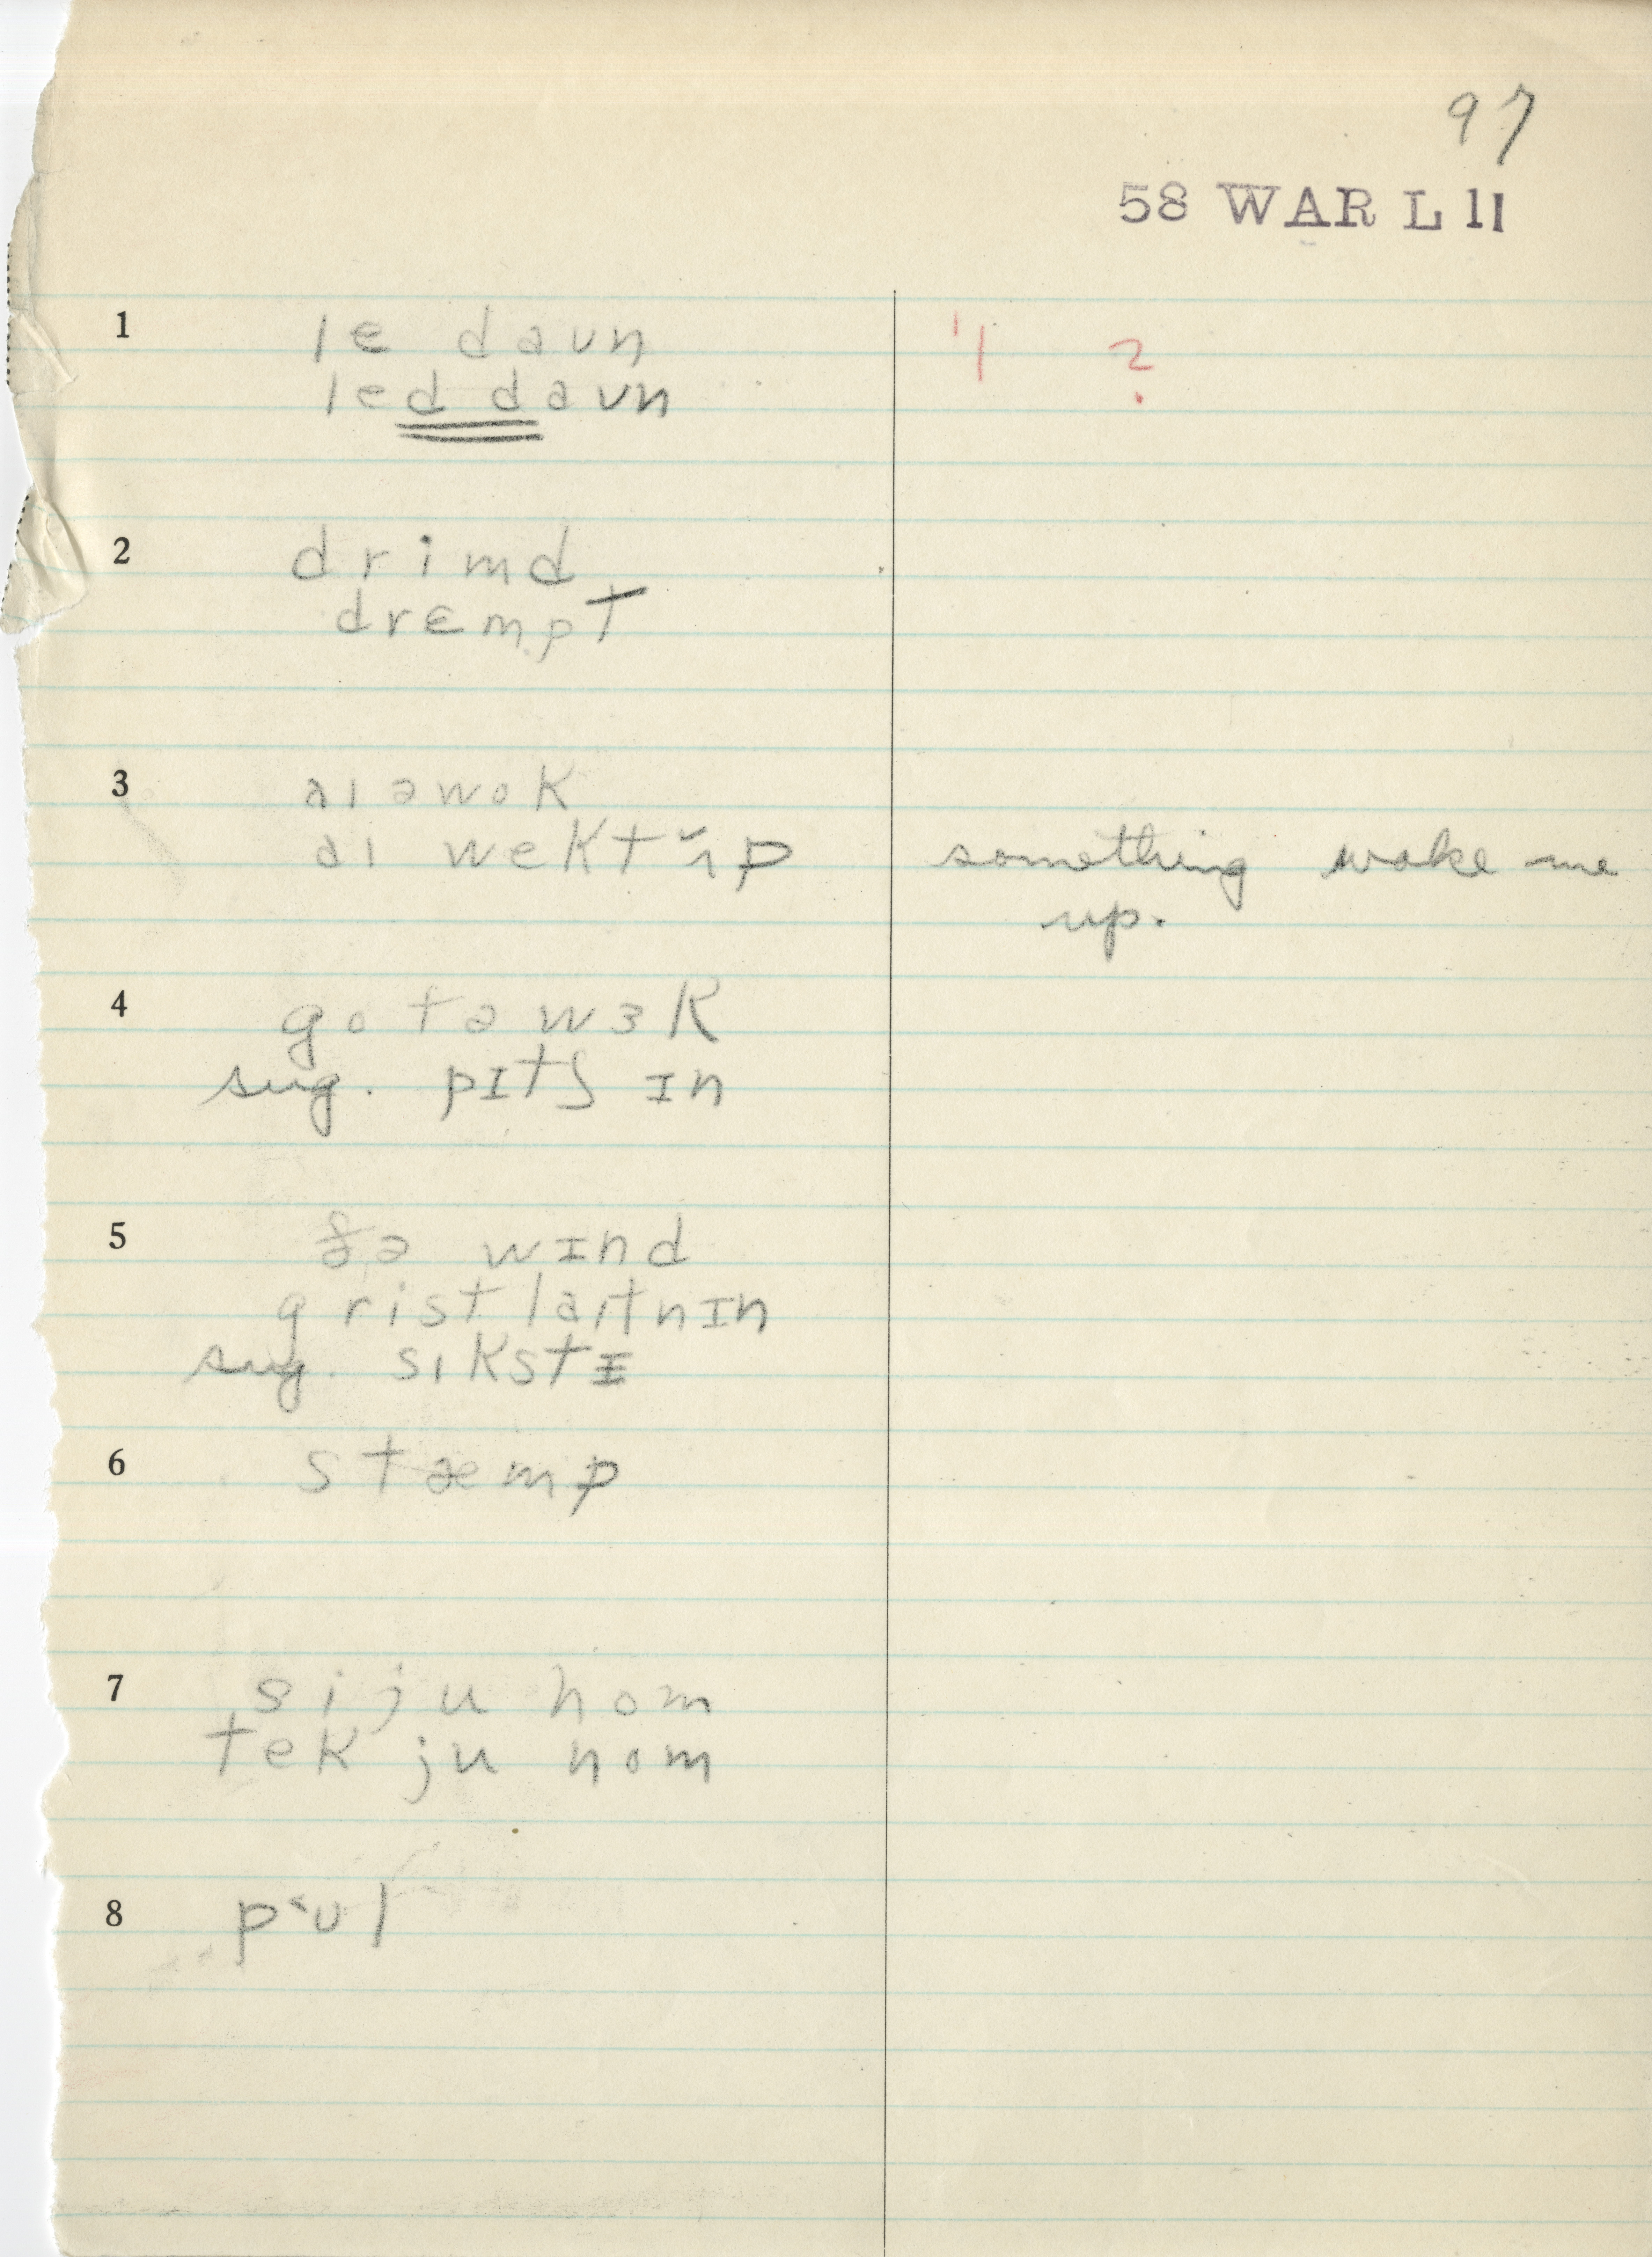 97
58 WAR L 11
1 le daʊn ˈ1 ?
led daʊn
2 drimd
drɛmpt
3 aɪ əwok
aɪ wekt ʌ̌p something wake me
up.
4 go tə wɜk
sug. pɪtʃ ɪn
5 ðə wɪnd
grist laɪtnɪn
sug. sɪkstɪ
6 stæmp
7 si ju hom
tek ju hom
8 p˂ʊl